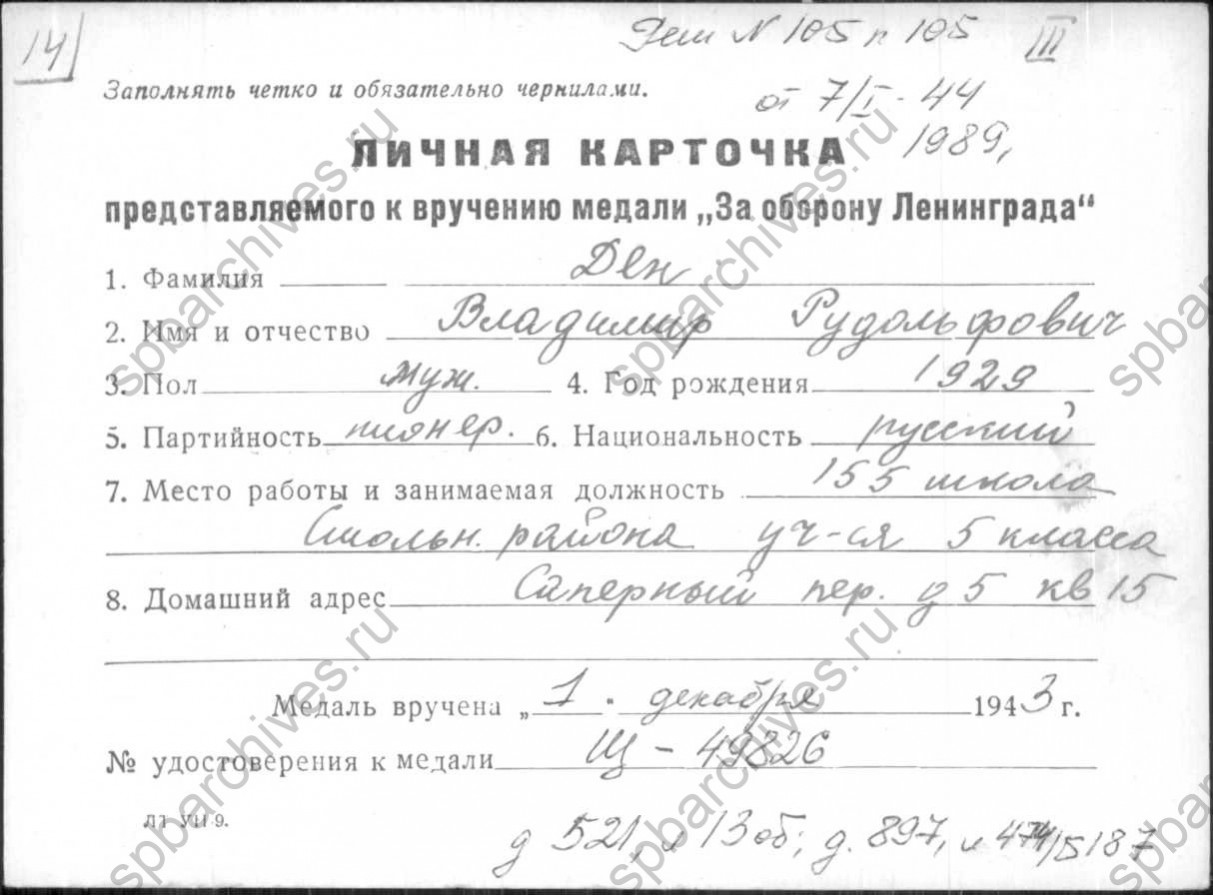 14
Реш № 105 п 105 III
Заполнять четко и обязательно чернилами.
от 7/I-44
ЛИЧНАЯ КАРТОЧКА
1989,
представляемого к вручению медали „За оборону Ленинграда“
1. Фамилия Ден
2. Имя и отчество Владимир Рудольфович
3. Пол муж. 4. Год рождения 1929
5. Партийность пионер. 6. Национальность русский
7. Место работы и занимаемая должность 155 школа
Смольн. района уч-ся 5 класса
8. Домашний адрес Саперный пер. д 5 кв 15
Медаль вручена „1. декабря 1943 г.
№ удостоверения к медали Щ - 49826
ЛТ УП 9.
д 521, л 13 об; д. 897, л
spbarchives.ru